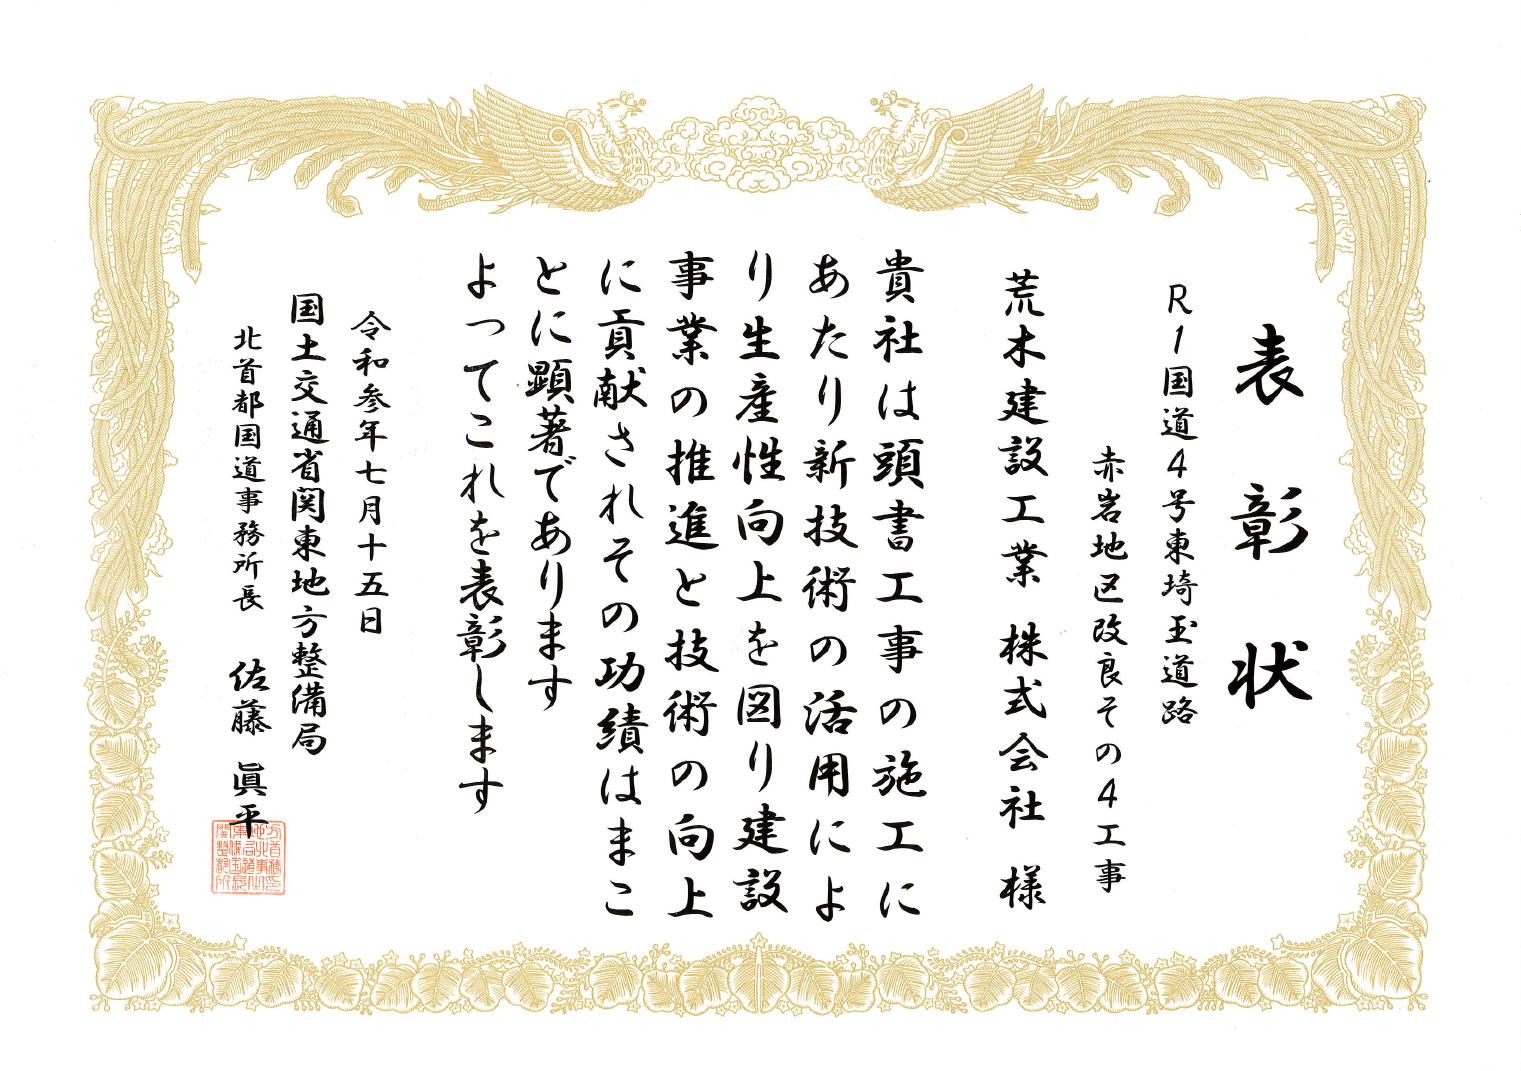 表彰状
R1国道4号東埼玉道路
赤岩地区改良その4工事
荒木建設工業 株式会社 様
貴社は頭書工事の施工に
あたり新技術の活用によ
り生産性向上を図り建設
事業の推進と技術の向上
に貢献されその功績はまこ
とに顕著であります
よってこれを表彰します
令和参年七月十五日
国土交通省関東地方整備局
北首都国道事務所長 佐藤 眞平